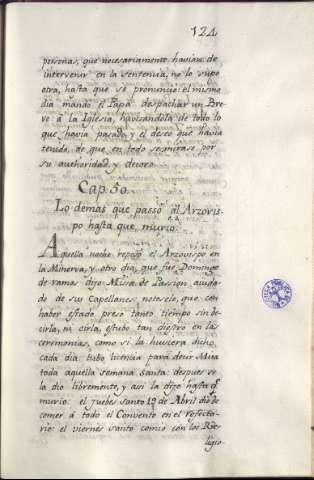 124
personas, que necesariamente havian de
intervenir en la sentencia, no lo supo
otra, hasta que se pronuncio: el mismo
dia mandò el Papa despachar un Bre
ve à la Iglesia, havisandola de todo lo
que havia pasado, y el deseo que havia
tenido, de que en todo se mirase por
su authoridad, y decoro.
Cap. 50.
Lo demas que passò al Arzovis-
po hasta que, muriò.
Aquella noche reposò el Arzovispo en
la Minerva, y otro dia, que fue Domingo
de ramos dijo Misa de Passion, ayuda
do de sus Capellanes: notose lo, que con
haber estado preso tanto tiempo sin de-
cirla, ni oirla, estubo tan diestro en las
ceremonias, como si la huviera dicho
cada dia: tubo licencia para decir Misa
toda aquella semana santa: despues se
la dio libremente, y asi la dijo hasta q.
muriò: el juebes santo 12 de Abril, dio de
comer à todo el Convento en el refecto-
rio: el viernes santo comiò con los Re-
ligio-